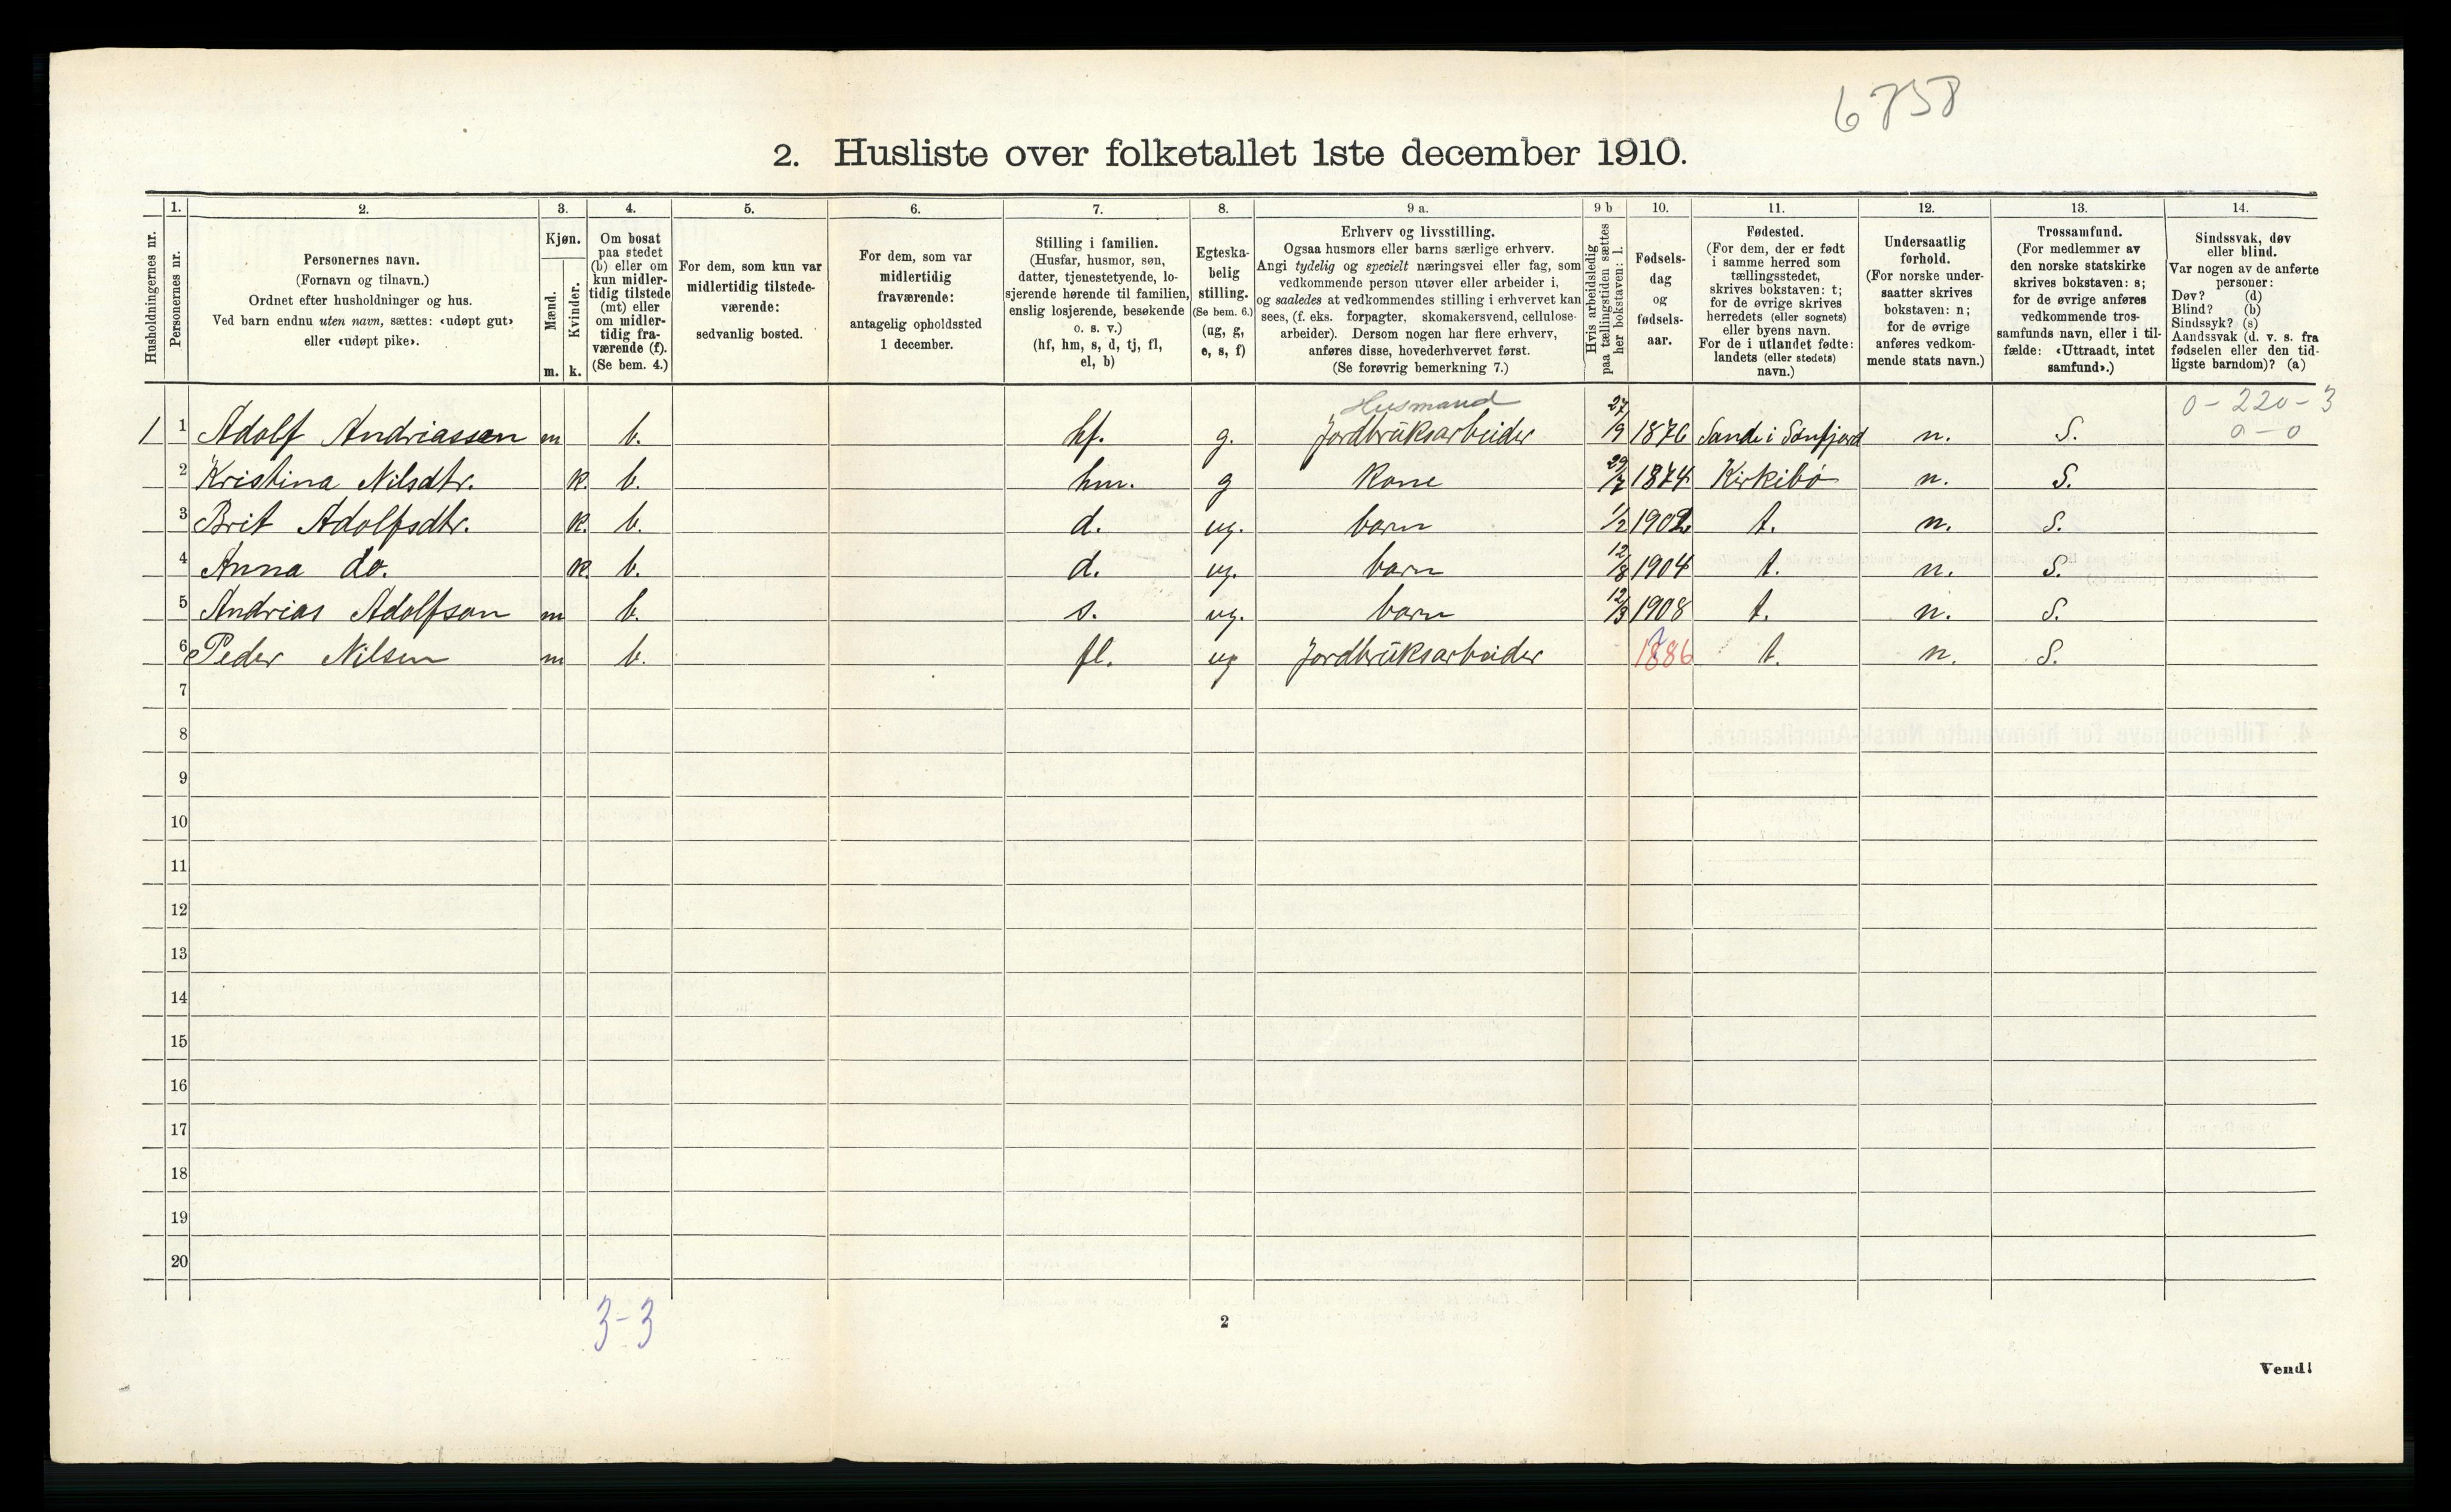 6758
2. Husliste over folketallet 1ste december 1910.
1. 2. 3. 4. 5. 6. 7. 8. 9 a. 9 b 10. 11. 12. 13. 14.
Husholdningernes nr.
Personernes nr.
Personernes navn.
(Fornavn og tilnavn.)
Ordnet efter husholdninger og hus.
Ved barn endnu uten navn, sættes: «udøpt gut»
eller «udøpt pike».
Kjøn.
Mænd.
Kvinder.
m. k.
Om bosat
paa stedet
(b) eller om
kun midler-
tidig tilstede
(mt) eller
om midler-
tidig fra-
værende (f).
(Se bem. 4.)
For dem, som kun var
midlertidig tilstede-
værende:
sedvanlig bosted.
For dem, som var
midlertidig
fraværende:
antagelig opholdssted
1 december.
Stilling i familien.
(Husfar, husmor, søn,
datter, tjenestetyende, lo-
sjerende hørende til familien,
enslig losjerende, besøkende
o. s. v.)
(hf, hm, s, d, tj, fl,
el, b)
Egteska-
belig
stilling.
(Se bem. 6.)
(ug, g,
e, s, f)
Erhverv og livsstilling.
Ogsaa husmors eller barns særlige erhverv.
Angi tydelig og specielt næringsvei eller fag, som
vedkommende person utøver eller arbeider i,
og saaledes at vedkommendes stilling i erhvervet kan
sees, (f. eks. forpagter, skomakersvend, cellulose-
arbeider). Dersom nogen har flere erhverv,
anføres disse, hovederhvervet først.
(Se forøvrig bemerkning 7.)
Hvis arbeidsledig
paa tællingstiden sættes
her bokstaven: l.
Fødsels-
dag
og
fødsels-
aar.
Fødested.
(For dem, der er født
i samme herred som
tællingsstedet,
skrives bokstaven: t;
for de øvrige skrives
herredets (eller sognets)
eller byens navn.
For de i utlandet fødte:
landets (eller stedets)
navn.)
Undersaatlig
forhold.
(For norske under-
saatter skrives
bokstaven: n;
for de øvrige
anføres vedkom-
mende stats navn.)
Trossamfund.
(For medlemmer av
den norske statskirke
skrives bokstaven: s;
for de øvrige anføres
vedkommende tros-
samfunds navn, eller i til-
fælde: «Uttraadt, intet
samfund».)
Sindssvak, døv
eller blind.
Var nogen av de anførte
personer:
Døv? (d)
Blind? (b)
Sindssyk? (s)
Aandssvak (d. v. s. fra
fødselen eller den tid-
ligste barndom)? (a)
Husmand 0-220-3
1 1 Adolf Andriassen m b. hf. g. Jordbruksarbeider 27/9 1876 Sande i Sønfjord n. S. 0-0
2 Kristina Nilsdtr. k. b. hm. g Kone 29/7 1874 Kirkibø n. S.
3 Brit Adolfsdtr. k. b. d. ug. barn 1/2 1902 t. n. S.
4 Anna do. k. b. d. ug. barn 12/8 1904 t. n. S.
5 Andrias Adolfson m b. s. ug. barn 12/3 1908 t. n. S.
6 Peder Nilsen m b. fl. ug Jordbruksarbeider 1886 t. n. S.
7
8
9
10
11
12
13
14
15
16
17
18
19
20
3-3
2
Vend!